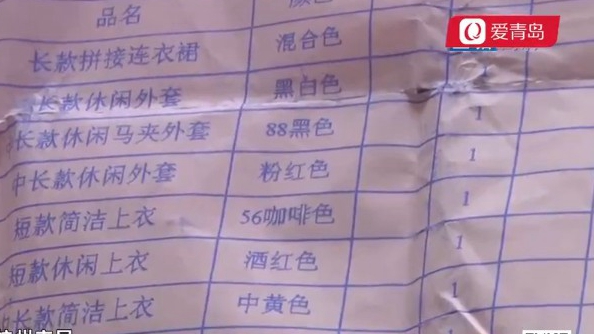 爱青岛
品名
长款拼接连衣裙 混合色
长款休闲外套 黑白色 1
中长款休闲马夹外套 88黑色 1
中长款休闲外套 粉红色 1
短款简洁上衣 56咖啡色 1
短款休闲上衣 酒红色 1
中长款简洁上衣 中黄色 1